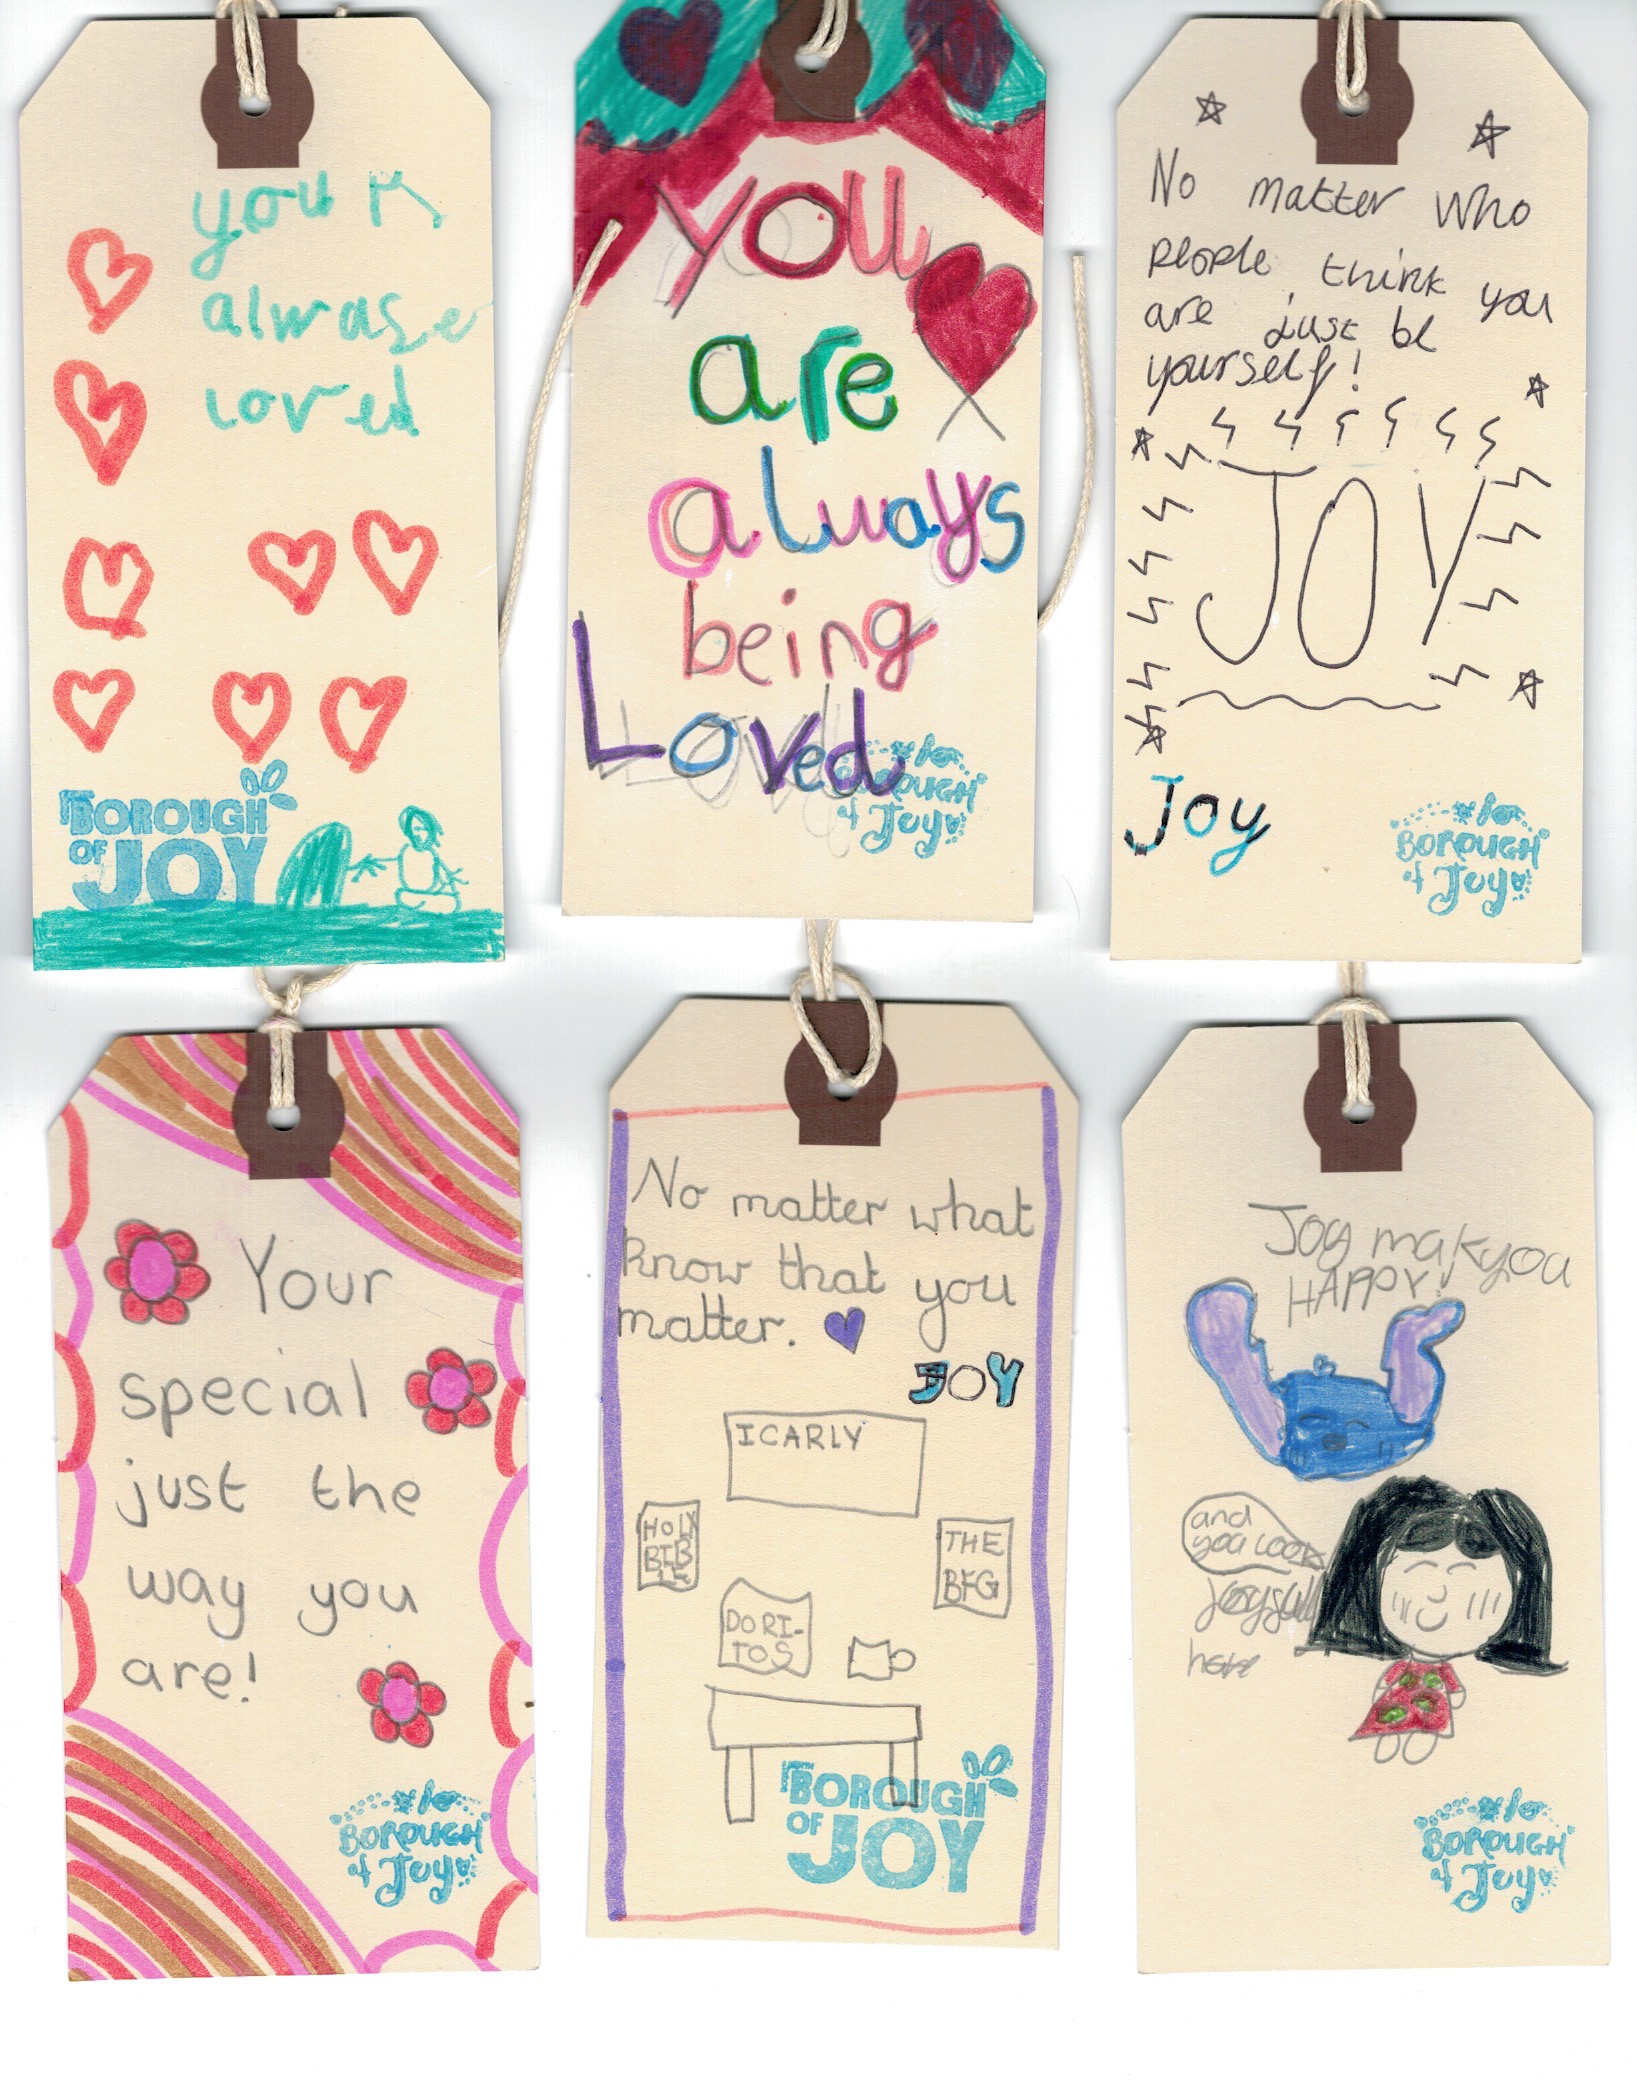 you r
alwase
loved
BOROUGH
OF
JOY
you
are
always
being
Loved
BOROUGH
of Joy
No matter who
people think you
are just be
yourself!
JOY
Joy
BOROUGH
of Joy
Your
special
just the
way you
are!
BOROUGH
of Joy
No matter what
know that you
matter.
JOY
ICARLY
HOLY
BIB
LE
THE
BFG
DORI-
TOS
BOROUGH
OF
JOY
Joy mak you
HAPPY!
and
you look
BOROUGH
of Joy